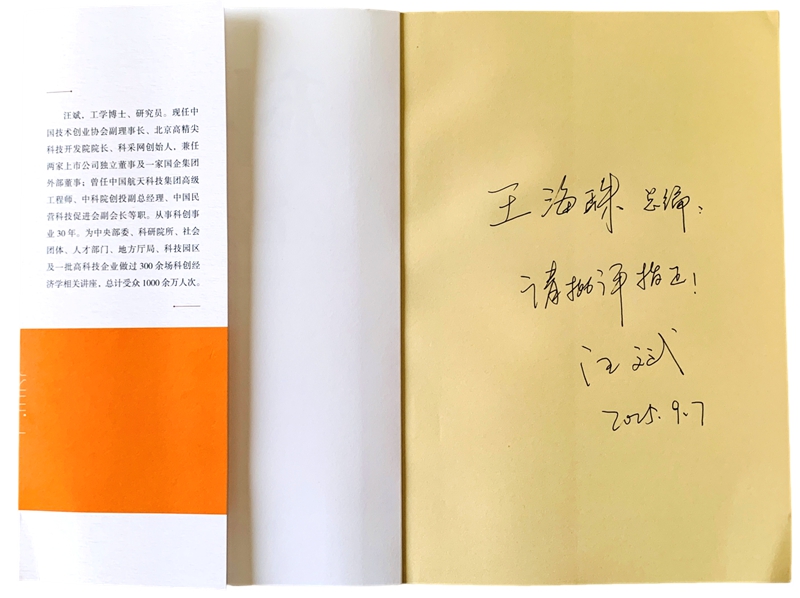 汪斌，工学博士、研究员。现任中
国技术创业协会副理事长、北京高精尖
科技开发院院长、科采网创始人，兼任
两家上市公司独立董事及一家国企集团
外部董事；曾任中国航天科技集团高级
工程师、中科院创投副总经理、中国民
营科技促进会副会长等职。从事科创事
业30年。为中央部委、科研院所、社会
团体、人才部门、地方厅局、科技园区
及一批高科技企业做过300余场科创经
济学相关讲座，总计受众1000余万人次。
王海珠总编：
请批评指正！
汪斌
2025.9.7